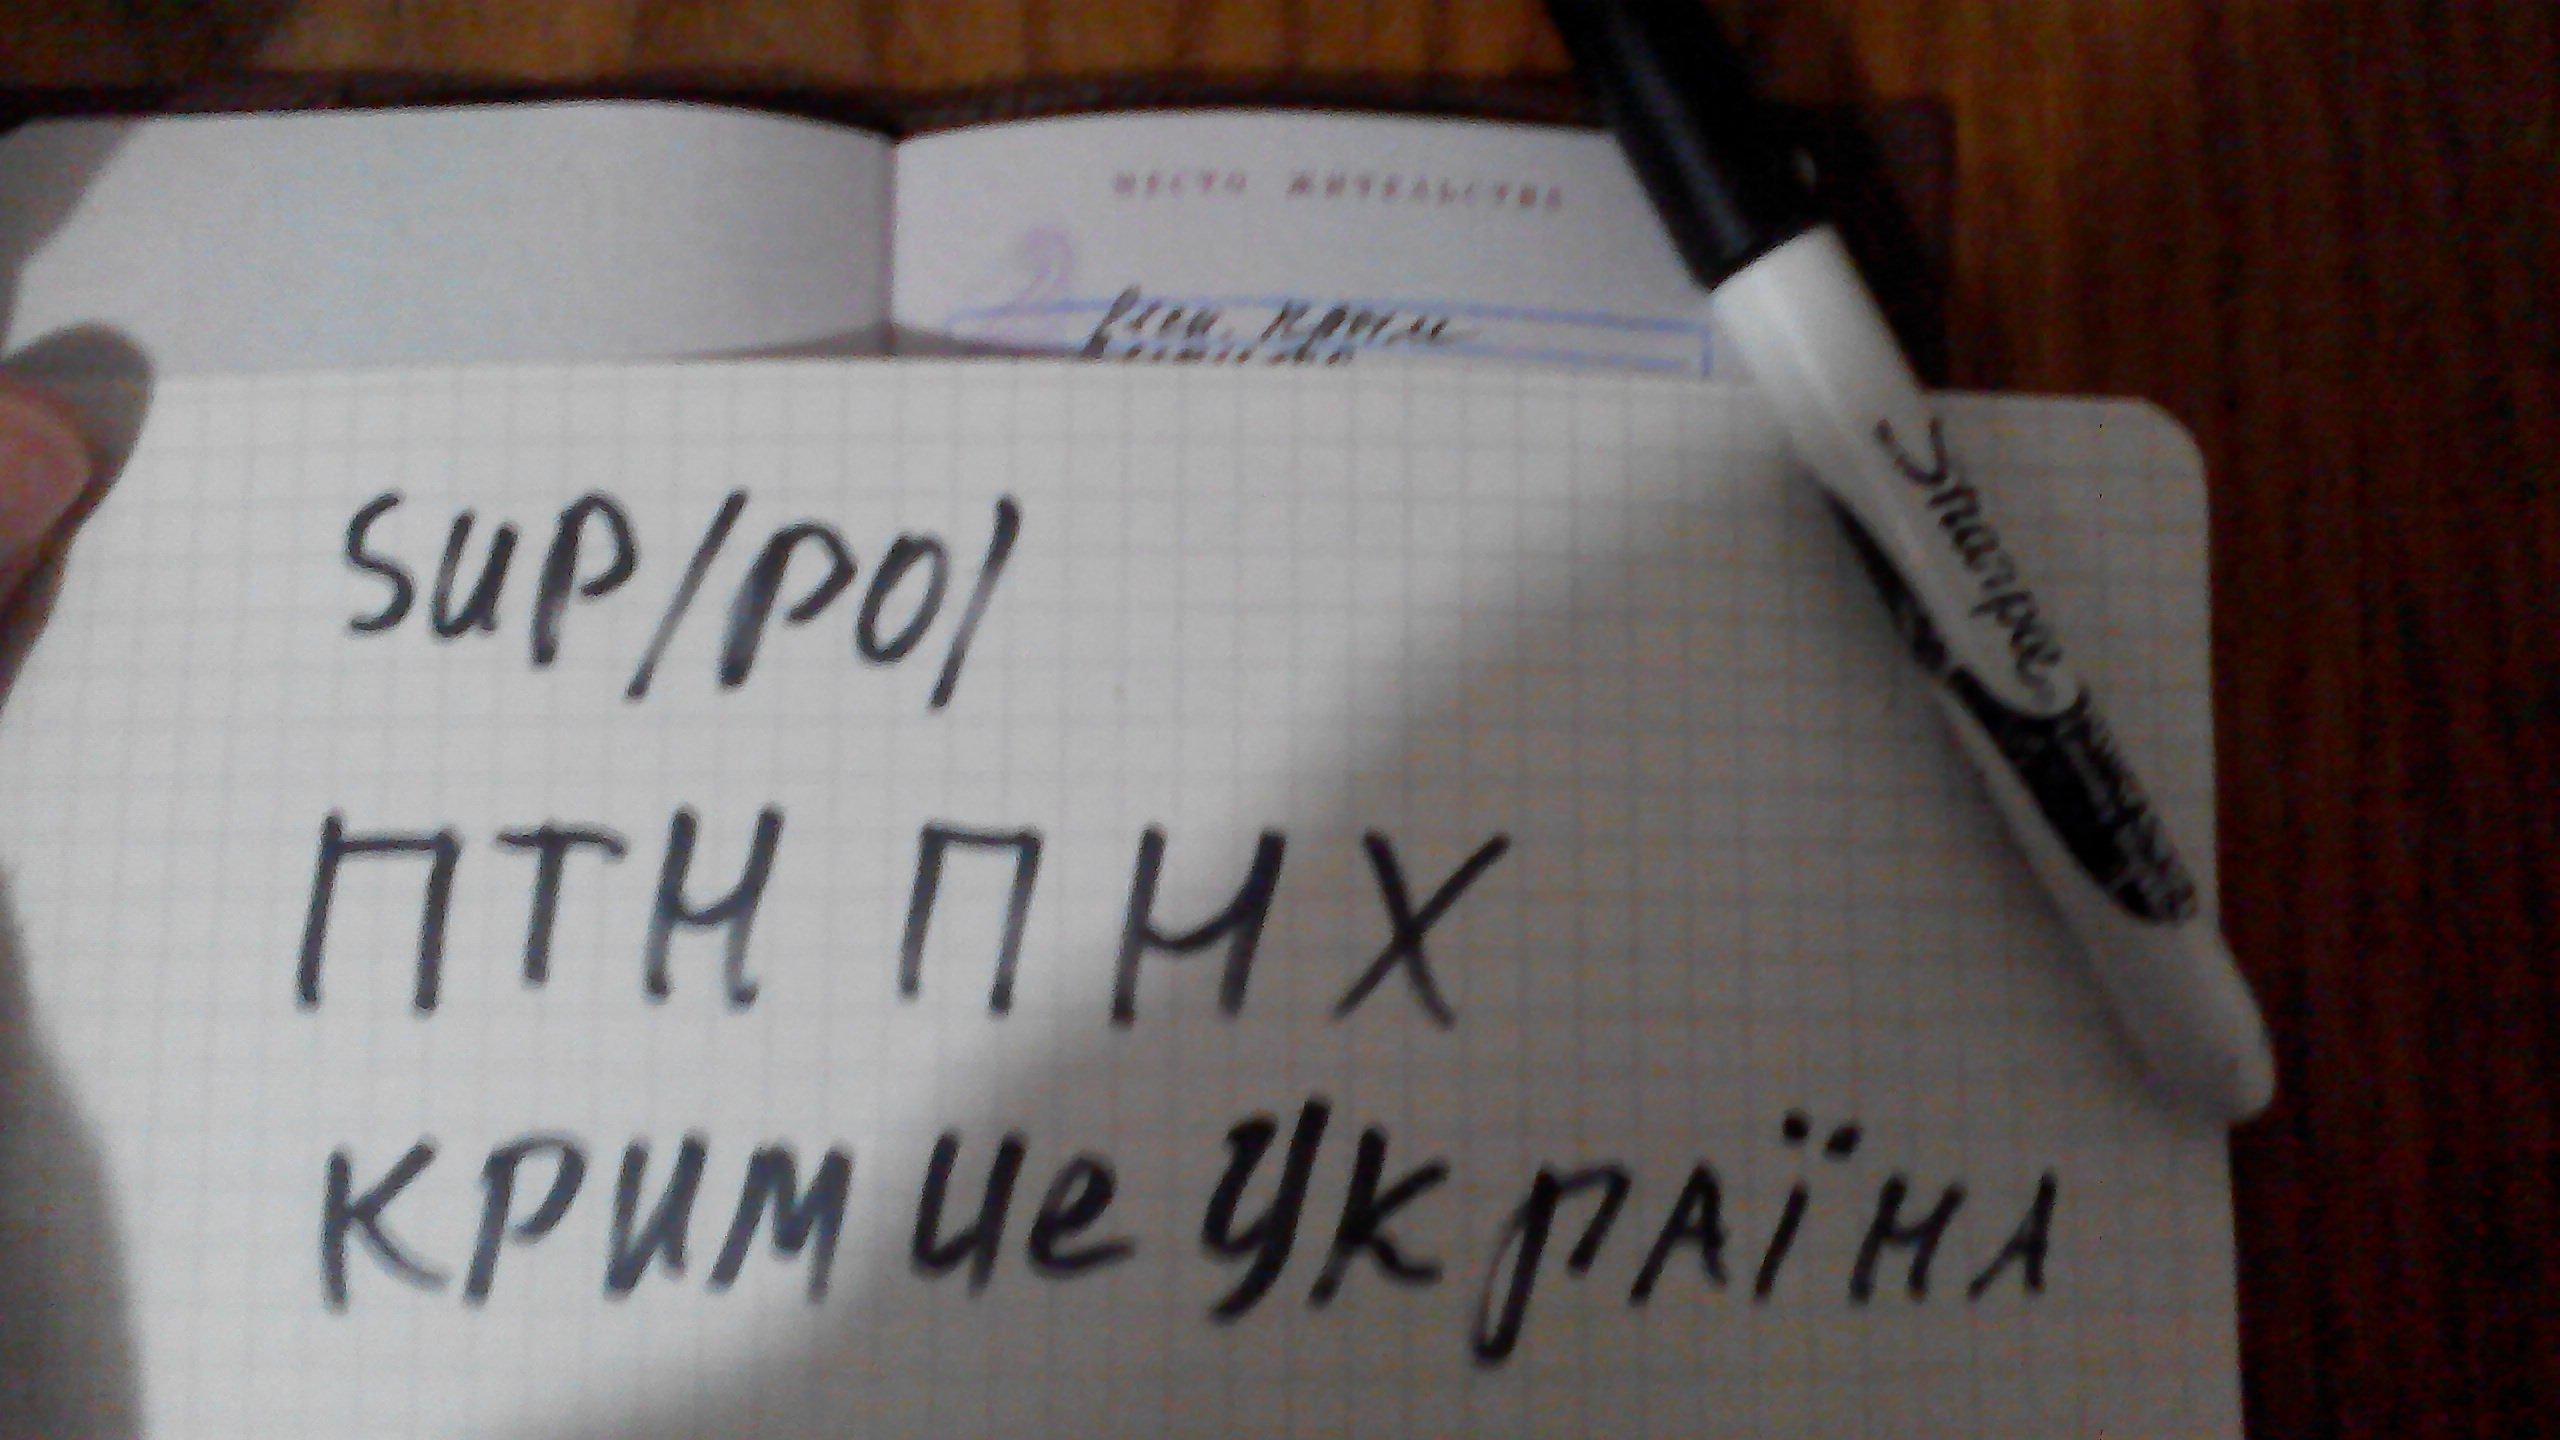 МЕСТО ЖИТЕЛЬСТВА
Респ. Крым
sup/pol
ПТН ПНХ
КРИМ це УКрАЇНА
Sharpie